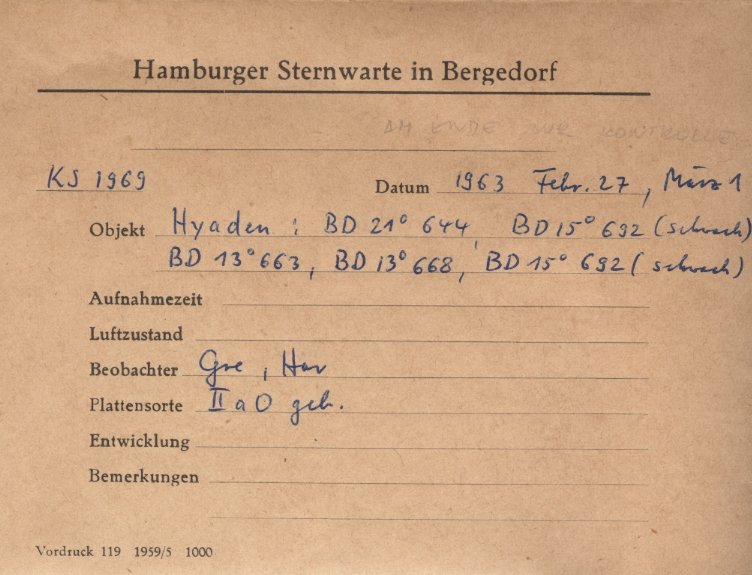 Hamburger Sternwarte in Bergedorf
AM ENDE ZUR KONTROLLE
KS 1969
Datum 1963 Febr. 27, März 1
Objekt Hyaden: BD 21° 644, BD 15° 692 (schwach)
BD 13° 663, BD 13° 668, BD 15° 692 (schwach)
Aufnahmezeit
Luftzustand
Beobachter Gre, Har
Plattensorte II a O geh.
Entwicklung
Bemerkungen
Vordruck 119 1959/5 1000